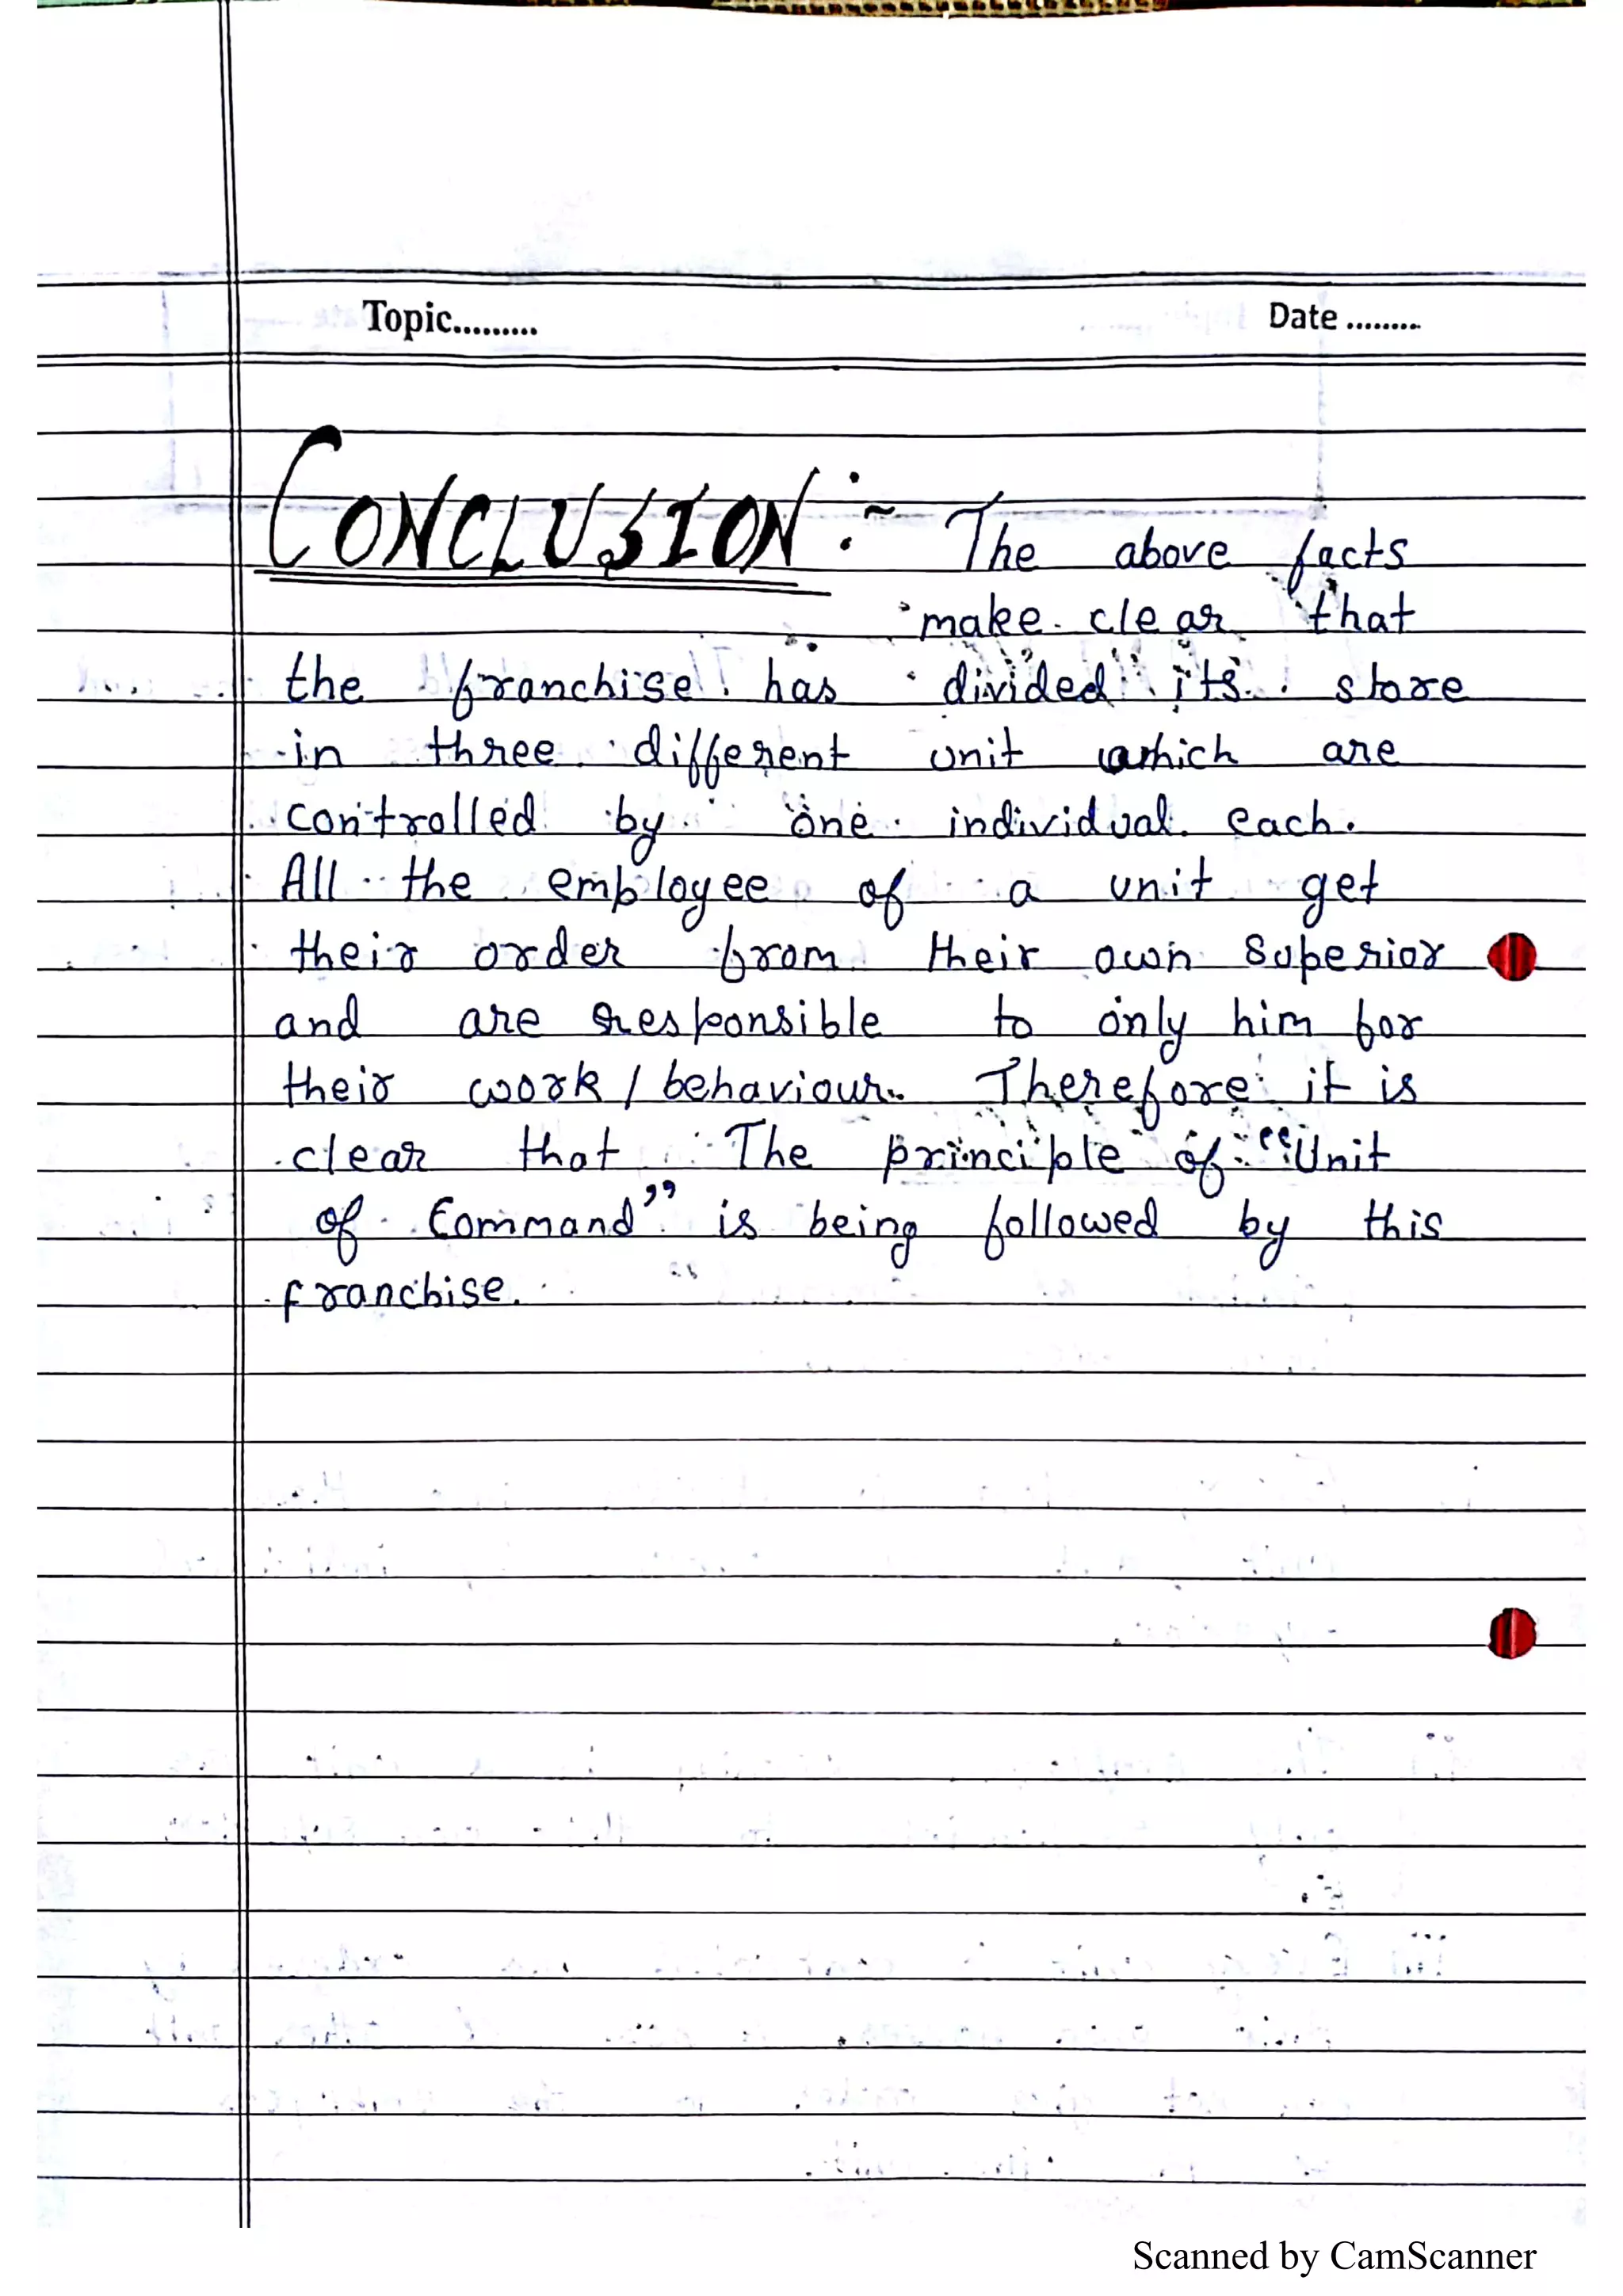 Topic......... Date ........
CONCLUSION :- The above facts
make clear that
the franchise has divided its store
in three different unit which are
controlled by one individual each.
All the employee of a unit get
their order from their own superior
and are responsible to only him for
their work / behaviour. Therefore it is
clear that The principle of "Unit
of Command" is being followed by this
franchise.
Scanned by CamScanner